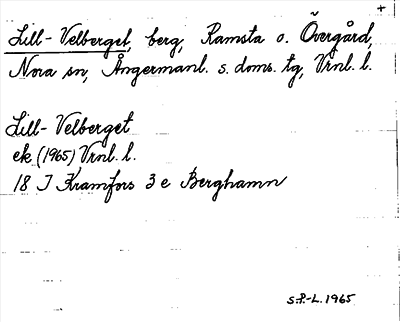 +
Lill-Velberget, berg, Ramsta o. Övergård,
Nora sn, Ångermanl. s. doms. tg, Vrnl. l.
Lill-Velberget
ek (1965) Vrnl. l.
18 J Kramfors 3 e Berghamn
S.P.-L. 1965